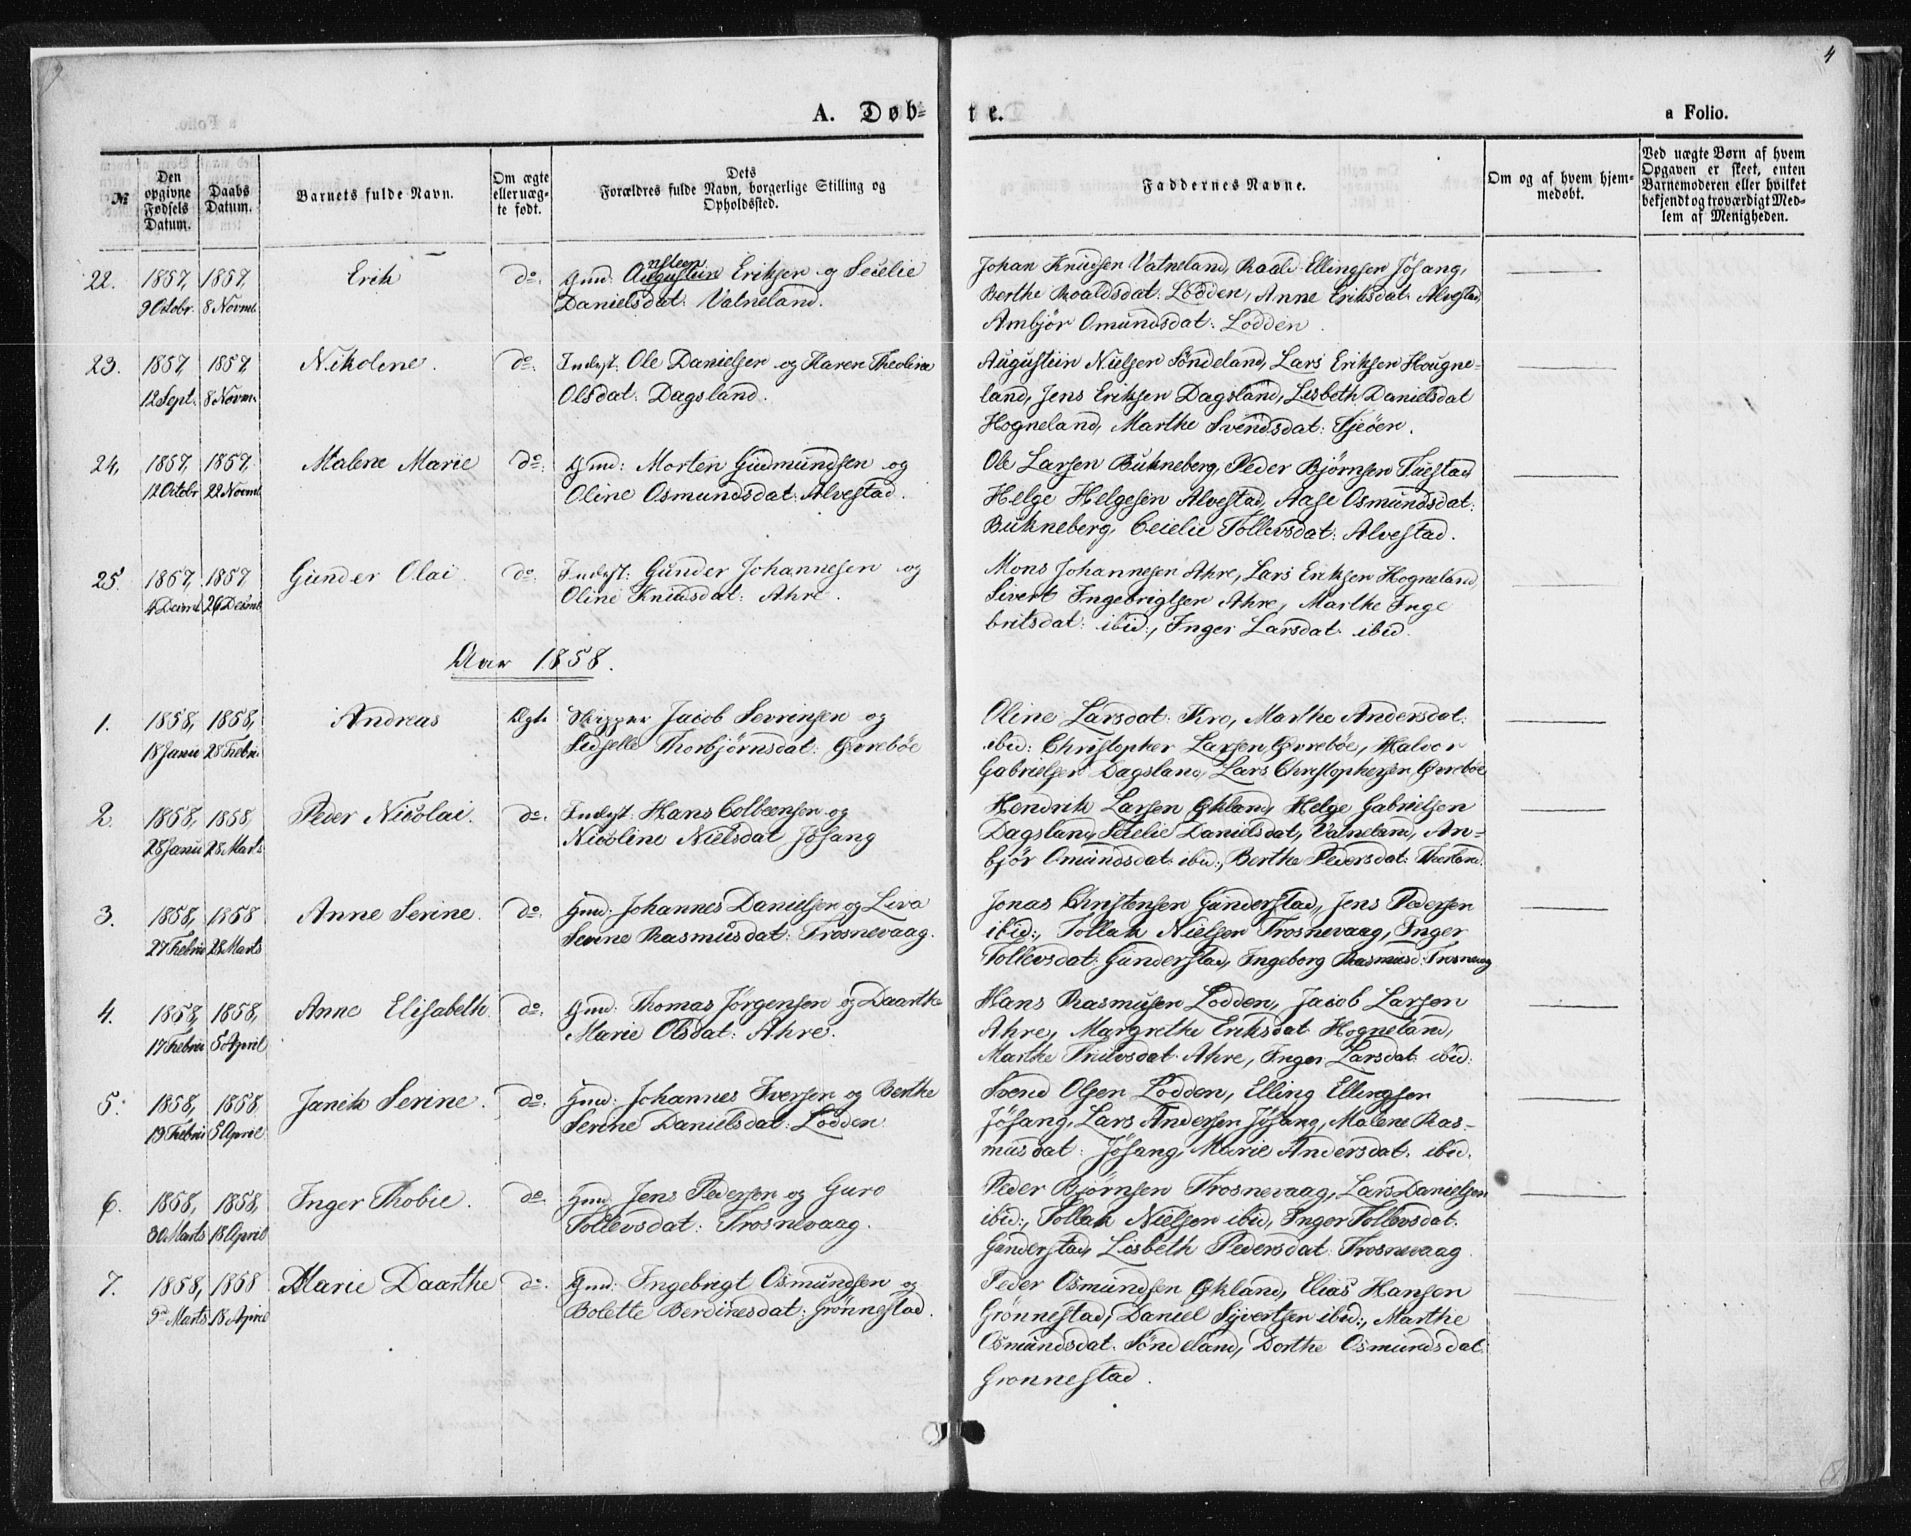 4
A. Døb-
te.
a Folio.
№
Den opgivne Fødsels Datum.
Daabs Datum.
Barnets fulde Navn.
Om ægte eller uægte født.
Dets Forældres fulde Navn, borgerlige Stilling og Opholdssted.
Faddernes Navne.
Om og af hvem hjemmedøbt.
Ved uægte Børn af hvem Opgaven er skeet, enten Barnemoderen eller hvilket bekjendt og troværdigt Medlem af Menigheden.
22. 1857, 1857, Erik do. Gmd: Augustein Eriksen og Secelie
9 Octobr. 8 Novmb. Danielsdat: Vatneland.
Johan Knudsen Vatneland, Roald Ellingsen Jøsang,
Berthe Roaldsdat: Lodden, Anne Eriksdat: Alvestad
Ambjør Omundsdat: Lodden.
23. 1857, 1857, Nikoline. do. Indest: Ole Danielsen og Karen Theoline
12 Sept. 8 Novm. Olsdat: Dagsland.
Augustein Nielsen Søndeland, Lars Eriksen Hougne-
land, Jens Eriksen Dagsland, Lisbeth Danielsdat
Hogneland, Marthe Svendsdat:
24, 1857, 1857, Malene Marie do. Gmd: Morten Gudmundsen og
12 Octobr 22 Novmb. Oline Osmundsdat: Alvestad.
Ole Larsen Bukneberg, Peder Bjørnsen
Helge Helgesen Alvestad, Aase Osmundsdat:
Bukneberg, Ceielie Tollevsdat: Alvestad.
25. 1857, 1857 Gunder Olai do. Indest: Gunder Johannesen og
4 26 Oline Knudsdat: Ahre.
Mons Johannesen Ahre, Lars Eriksen Hogneland,
Sivert Ingebrigtsen Ahre, Marthe Inge
britsdat: ibid:, Inger Larsdat: ibid.
Aar 1858.
1. 1858, 1858, Andreas Ægte Skipper Jacob Sevrinsen og
18 Janu 28 Febru. Sidselle Thorbjørnsdat: Øvrebøe
Oline Larsdat: Kro, Marthe Andersdat:
ibid: Christopher Larsen Øvrebøe, Halvor
Gabrielsen Dagsland, Lars Christophersen Øvrebøe
2. 1858, 1858, Peder Nicolai. do. Indest: Hans Colbeensen og
28 Janu 28 Marts Nicoline Nielsdat Jøsang
Hendrik Larsen Økland, Helge Gabrielsen
Dagsland, Secelie Danielsdat, Vatneland, An-
bjør Omundsdat: ibid:, Berthe Pedersdat:
3. 1858, 1858 Anne Serine. do. Gmd: Johannes Danielsen og Liva
27 Febru 28 Marts Serine Rasmusdat: Trosnevaag.
Jonas Christensen Gunderstad, Jens Pedersen
ibid:, Tollak Nielsen Trosnevaag, Inger
Tollevsdat: Gunderstad, Ingeborg Rasmusd: Trosnevaag
4. 1858, 1858, Anne Elisabeth. do. Gmd: Thomas Jørgensen og Daarthe
17 Febru 5 April Marie Olsdat: Ahre.
Hans Rasmusen Lodden, Jacob Larsen
Ahre, Margrethe Eriksdat: Hogneland,
Marthe Truevsdat: Ahre, Inger Larsdat: ibid:
5. 1858, 1858 Janik Serine. do. Gmd: Johannes Iversen og Berthe
19 Febru 5 April. Serine Danielsdat: Lodden
Svend Olsen Lodden, Elling Ellingsen
Jøsang, Lars Andersen Jøsang, Malene Ras-
musdat: Jøsang, Marie Andersdat: ibid.
6. 1858, 1858, Inger Thobie. do Gmd. Jens Pedersen og Guro
30 Marts 18 April Tollevsdat: Trosnevaag.
Peder Bjørnsen Trosnevaag, Lars Danielsen
ibid:, Tollak Nielsen ibid, Inger Tollevsdat.
Gunderstad, Lisbeth Pedersdat: Trosnevaag
7. 1858, 1858 Marie Daarthe do. Gmd: Ingebrigt Osmundsen og
9 Marts 18 April Bolette Berdinesdat: Grønnestad.
Peder Osmundsen Økland, Elias Hansen
Grønnestad, Daniel Syvertsen ibid:, Marthe
Osmundsdat. Søndeland, Dorthe Osmundsdat:
Grønnestad.